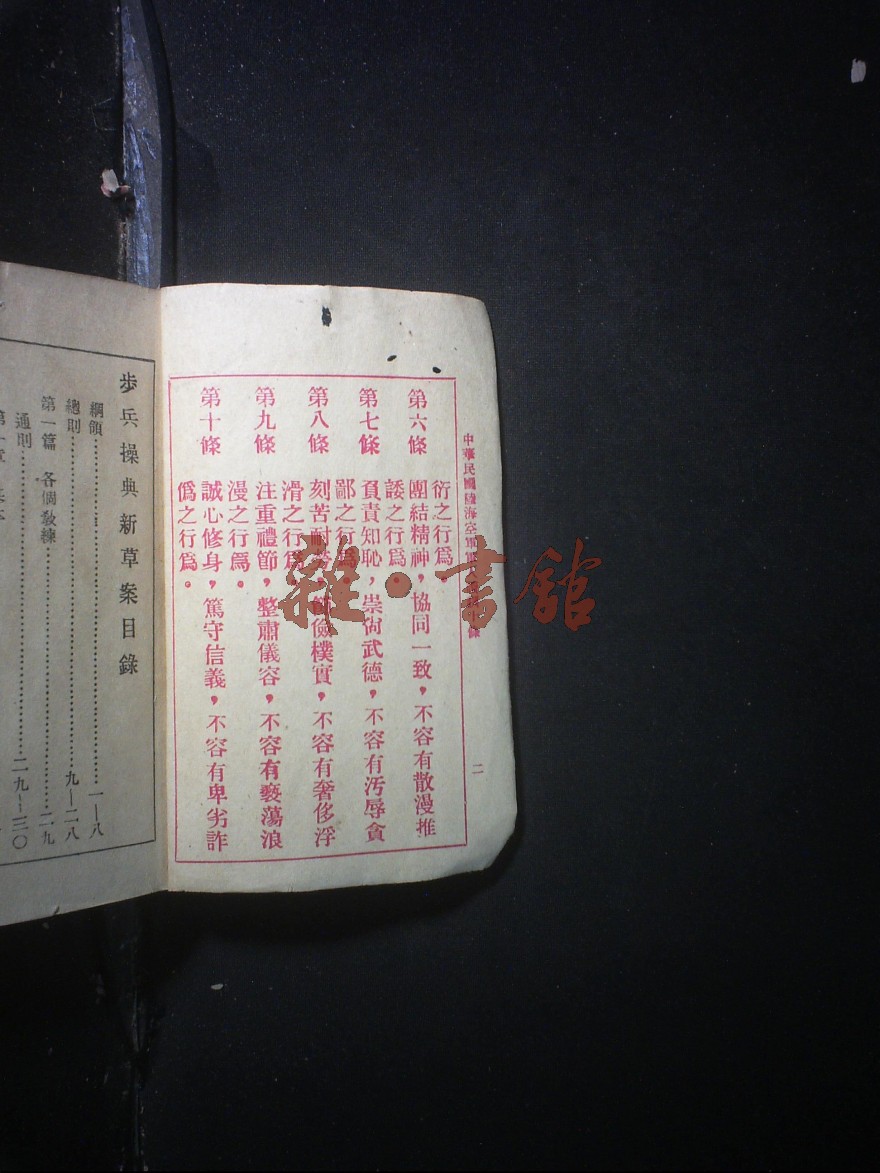 中華民國陸海空軍軍人讀訓十條
二
衍之行爲。
第六條 團結精神，協同一致，不容有散漫推
諉之行爲。
第七條 負責知恥，崇尙武德，不容有汚辱貪
鄙之行爲。
第八條 刻苦耐勞，節儉樸實，不容有奢侈浮
滑之行爲。
第九條 注重禮節，整肅儀容，不容有褻蕩浪
漫之行爲。
第十條 誠心修身，篤守信義，不容有卑劣詐
僞之行爲。
步兵操典新草案目錄
綱領 一—八
總則 九—二八
第一篇 各個敎練 二九
通則 二九—三〇
雜·書館